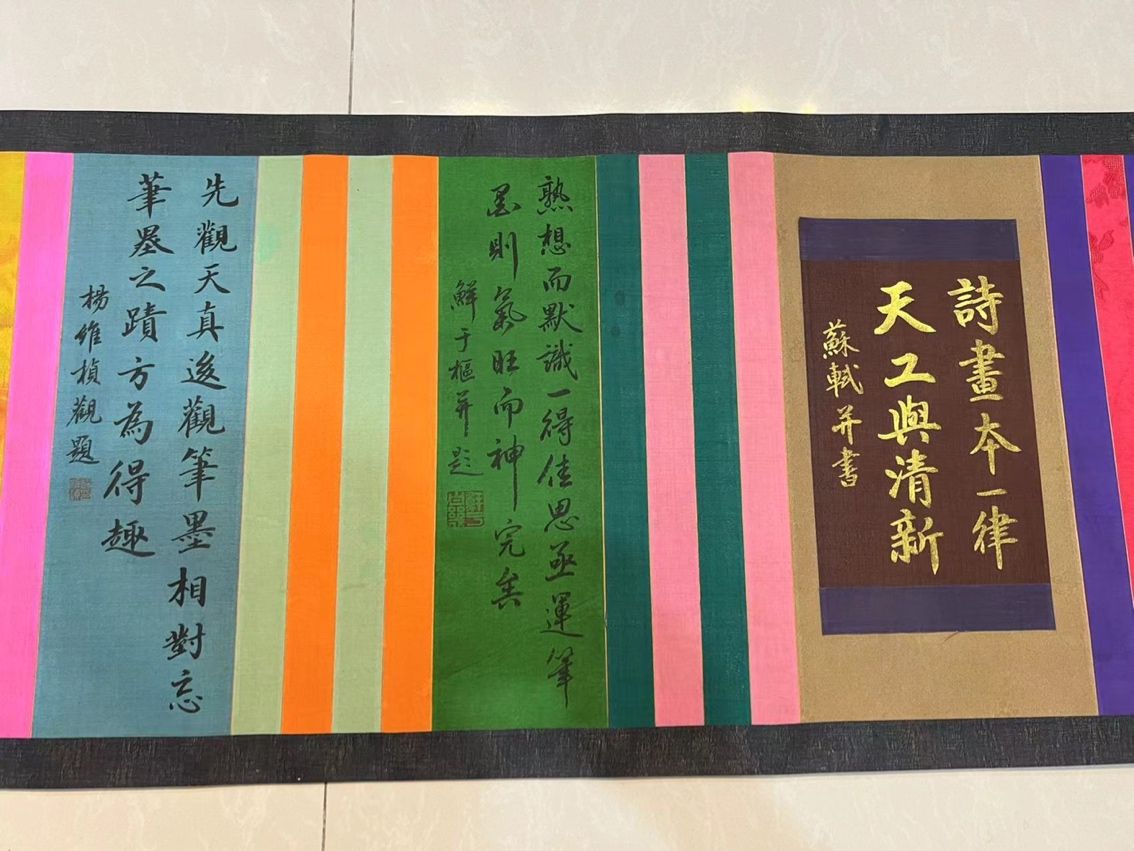 詩畫本一律
天工與清新
蘇軾并書
熟想而默識一得佳思亟運筆
墨則氣旺而神完矣
鮮于樞并題
先觀天真後觀筆墨相對忘
筆墨之蹟方為得趣
楊維楨觀題